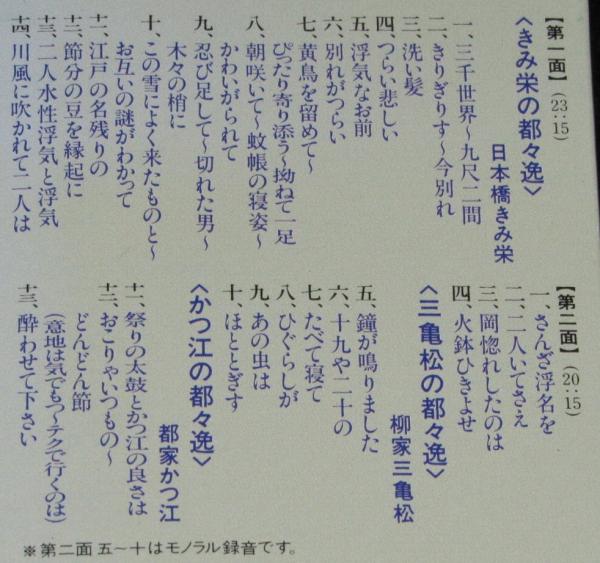 【第一面】(23:15)
〈きみ栄の都々逸〉
日本橋きみ栄
一、三千世界〜九尺二間
二、きりぎりす〜今別れ
三、洗い髪
四、つらい悲しい
五、浮気なお前
六、別れがつらい
七、黄鳥を留めて〜
ぴったり寄り添う〜拗ねて一足
八、朝咲いて〜蚊帳の寝姿〜
かわいがられて
九、忍び足して〜切れた男〜
木々の梢に
十、この雪によく来たものと〜
お互いの謎がわかって
十一、江戸の名残りの
十二、節分の豆を縁起に
十三、二人水性浮気と浮気
十四、川風に吹かれて二人は
【第二面】(20:15)
一、さんざ浮名を
二、二人いてさえ
三、岡惚れしたのは
四、火鉢ひきよせ
〈三亀松の都々逸〉
柳家三亀松
五、鐘が鳴りました
六、十九や二十の
七、たべて寝て
八、ひぐらしが
九、あの虫は
十、ほととぎす
〈かつ江の都々逸〉
都家かつ江
十一、祭りの太鼓とかつ江の良さは
十二、おこりゃいつもの〜
どんどん節
(意地は気でもつ〜テクで行くのは)
十三、酔わせて下さい
※第二面 五〜十はモノラル録音です。